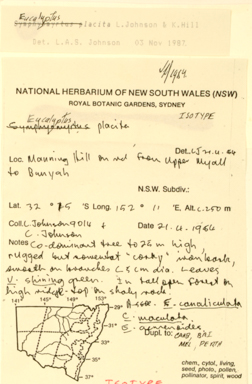 Eucalyptus
Symphyomyrtus placita L.Johnson & K.Hill
Det. L.A.S. Johnson 03 Nov 1987
NATIONAL HERBARIUM OF NEW SOUTH WALES (NSW)
ROYAL BOTANIC GARDENS, SYDNEY
ISOTYPE
Eucalyptus
Symphyomyrtus placita
Det. LJ 21.4.64
Loc. Hill on rd from Upper Myall
to Bunyah
N.S.W. Subdiv.:
Lat. 32° 15 'S Long. 152° 11 'E. Alt. c.250 m
Coll. L. Johnson &
C. Johnson
Date 21.4.1964
Notes Co-dominant tree to 25 m high,
rugged but somewhat 'corky' ironbark,
smooth on branches < 5 cm dia. Leaves
v. shining green. In tall open forest on
high ridge-top on shaly rock
Assoc. E. canaliculata
E. maculata
E. acmenoides
141° 145° 149° 153°
29°
31°
37°
Dupl. to: CANB, BRI
MEL PERTH
chem, cytol, living,
seed, photo, pollen,
pollinator, spirit, wood
ISOTYPE